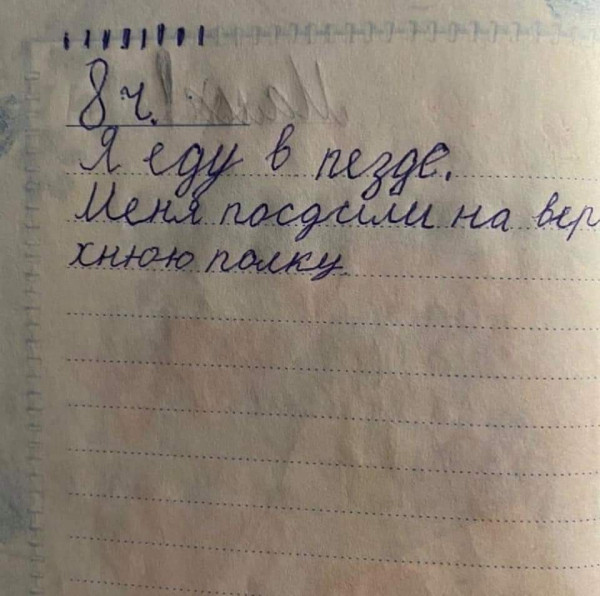 8 ч.
Я еду в пезде.
Меня посдили на вер
хнюю полку